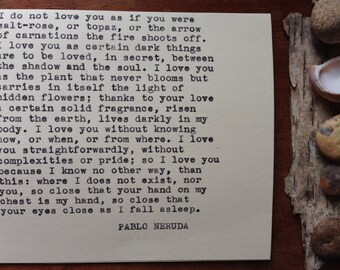 I do not love you as if you were
salt-rose, or topaz, or the arrow
of carnations the fire shoots off.
I love you as certain dark things
are to be loved, in secret, between
the shadow and the soul. I love you
as the plant that never blooms but
carries in itself the light of
hidden flowers; thanks to your love
a certain solid fragrance, risen
from the earth, lives darkly in my
body. I love you without knowing
how, or when, or from where. I love
you straightforwardly, without
complexities or pride; so I love you
because I know no other way, than
this: where I does not exist, nor
you, so close that your hand on my
chest is my hand, so close that
your eyes close as I fall asleep.
PABLO NERUDA